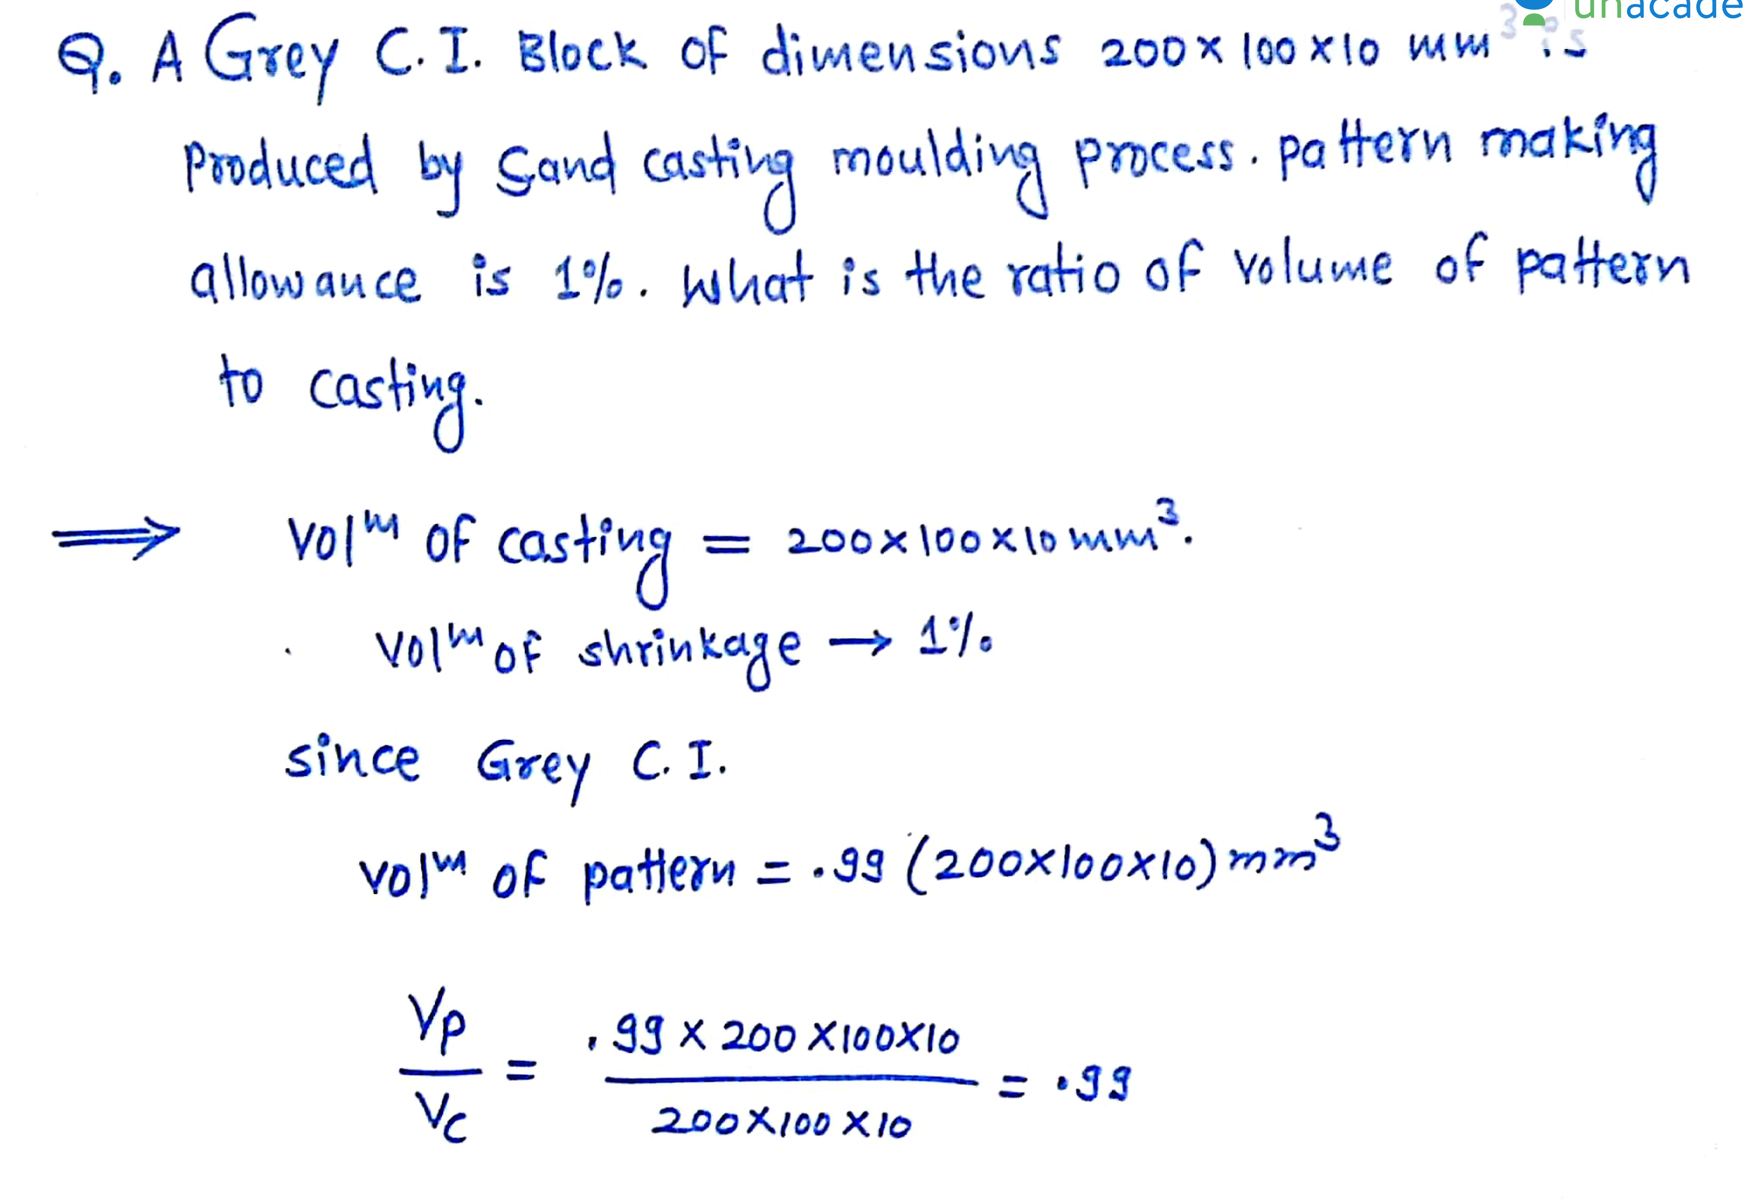 unacade
Q. A Grey C.I. Block of dimensions 200 x 100 x 10 mm³ is
Produced by Sand casting moulding process. pattern making
allowance is 1%. What is the ratio of volume of pattern
to casting.
⟹ volᵐ of casting = 200 x 100 x 10 mm³.
volᵐ of shrinkage → 1%
since Grey C.I.
volᵐ of pattern = .99 (200x100x10) mm³
Vp/Vc = .99 x 200 x100x10 / 200x100 x10 = .99